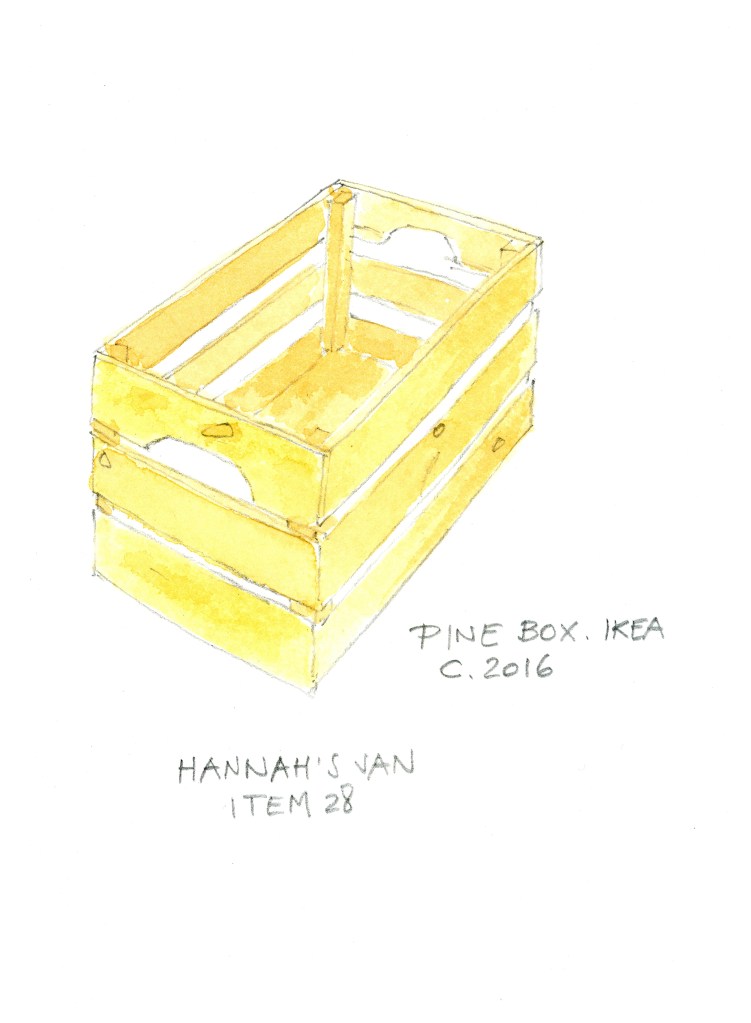 PINE BOX. IKEA
C. 2016
HANNAH'S VAN
ITEM 28